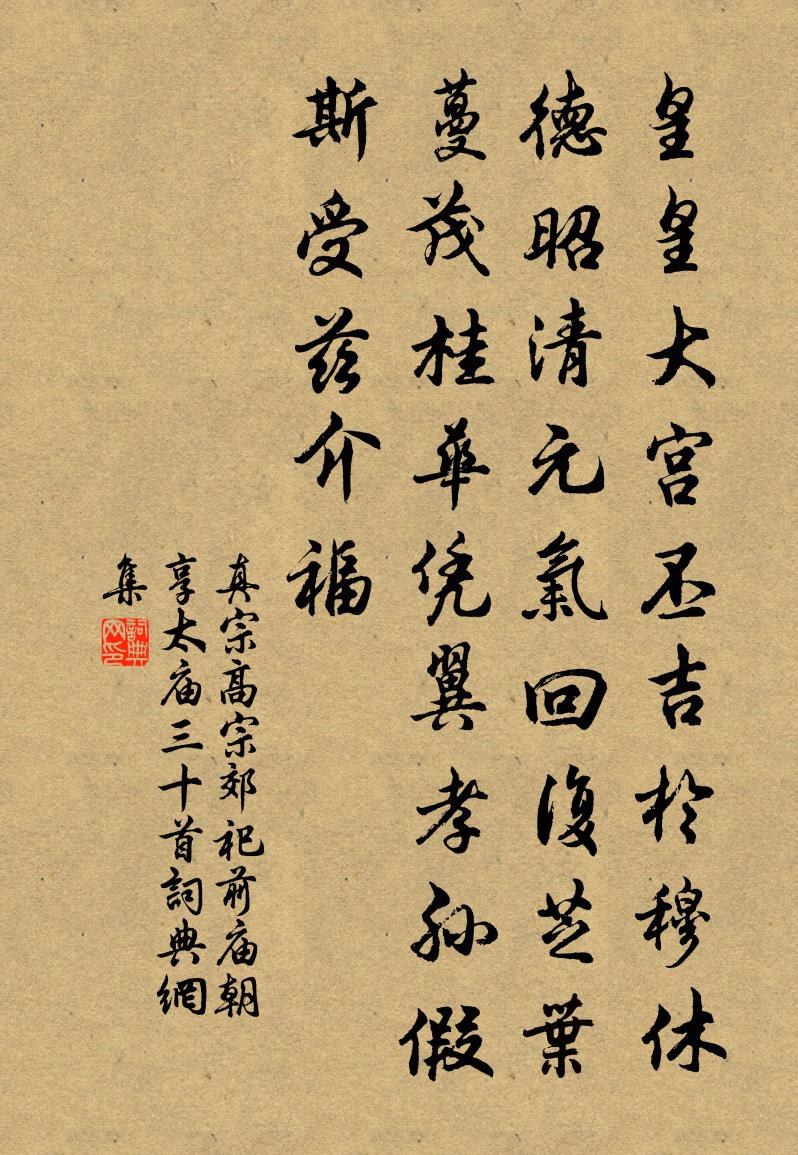 皇皇大宮丕吉於穆休
德昭清元氣回復芝葉
蔓茂桂華凭翼孝孙假
斯受茲介福
真宗高宗郊祀前庙朝
享太庙三十首詞典網
集
詞典網印